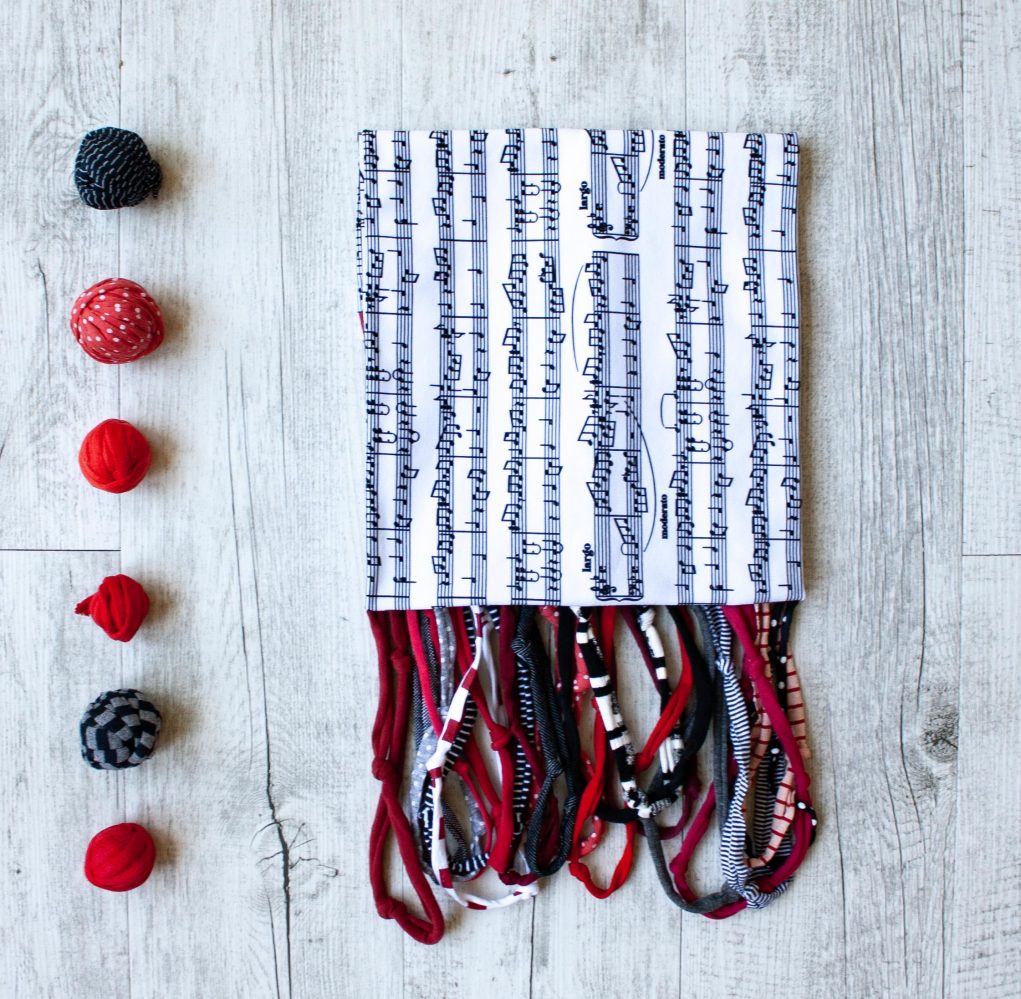 largo
moderato
largo
moderato